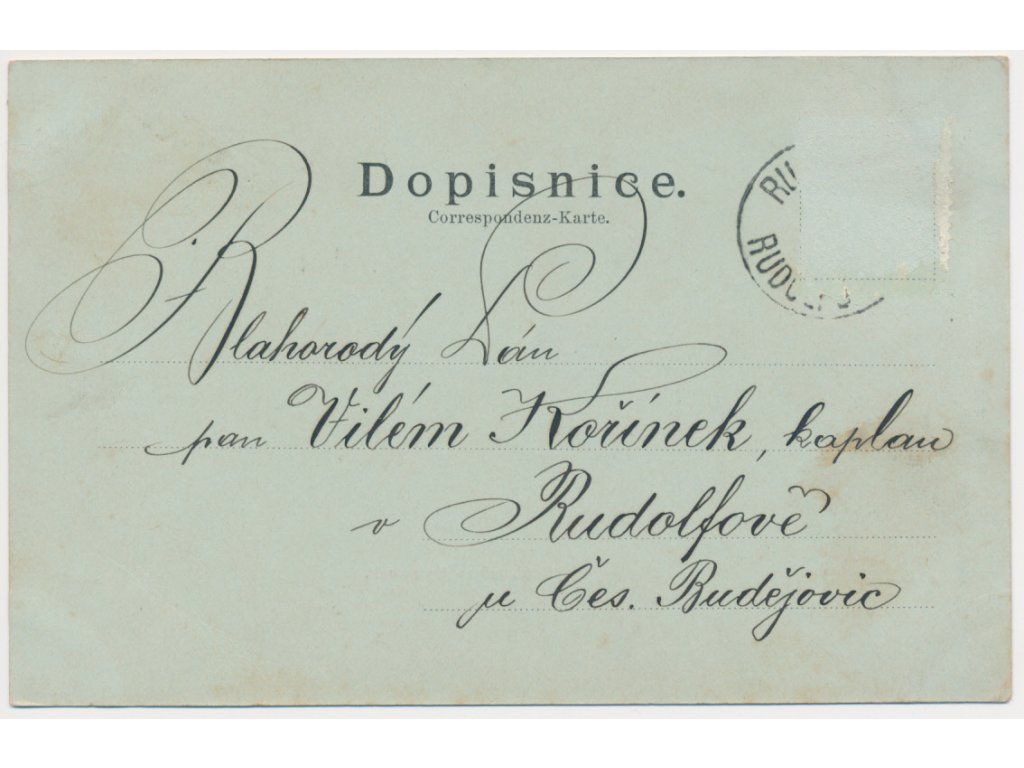 Dopisnice.
Correspondenz-Karte.
RU
RUDOLFS
Blahorodý Pán
pan Vilém Kořínek, kaplan
v Rudolfově
u Čes. Budějovic